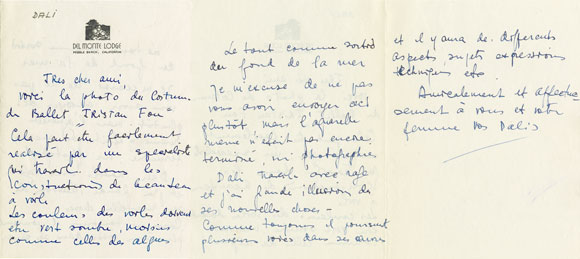 DALI
DEL MONTE LODGE
PEBBLE BEACH, CALIFORNIA
Tres cher ami,
voici la photo du costum
du Ballet "Tristan Fou"
Cela peut être facilement
realisé par un specialiste
qui travail dans les
constructions de beauteau
à voile
Les couleurs des voiles doivent
etre vert sombre,
comme celles des algues
Le tout comme sortid
du fond de la mer
Je m'excuse de ne pas
vous avoir envoyer cela
plutôt mais l'aquarelle
meme n'etait pas encore
terminé, ni photographiée
Dali travail avec rage
et j'ai grande illusion de
ses nouvelles choses -
Comme toujours il poursuit
plusieurs voies dans ses œuvres
et il y aura de differents
aspects, sujets expressions
techniques etc.
Amicalement et affectieu
sement à vous et votre
femme vos Dalis